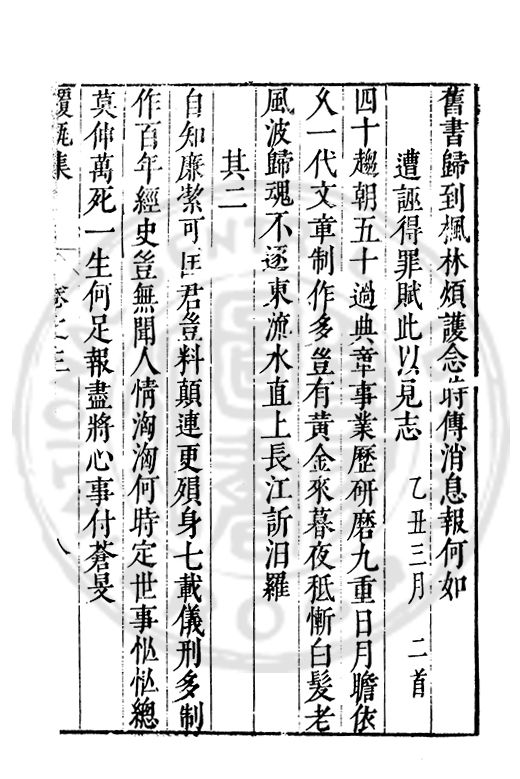 舊書歸到楓林煩護念時傳消息報何如
遭誣得罪賦此以見志 乙丑三月 二首
四十趨朝五十過典章事業歷研磨九重日月瞻依
久一代文章制作多豈有黃金來暮夜秪慚白髮老
風波歸魂不逐東流水直上長江訢汨羅
其二
自知廉潔可匡君豈料顛連更殞身七載儀刑多制
作百年經史豈無聞人情洶洶何時定世事忪忪總
莫伸萬死一生何足報盡將心事付蒼旻
覆瓿集 卷之三 八